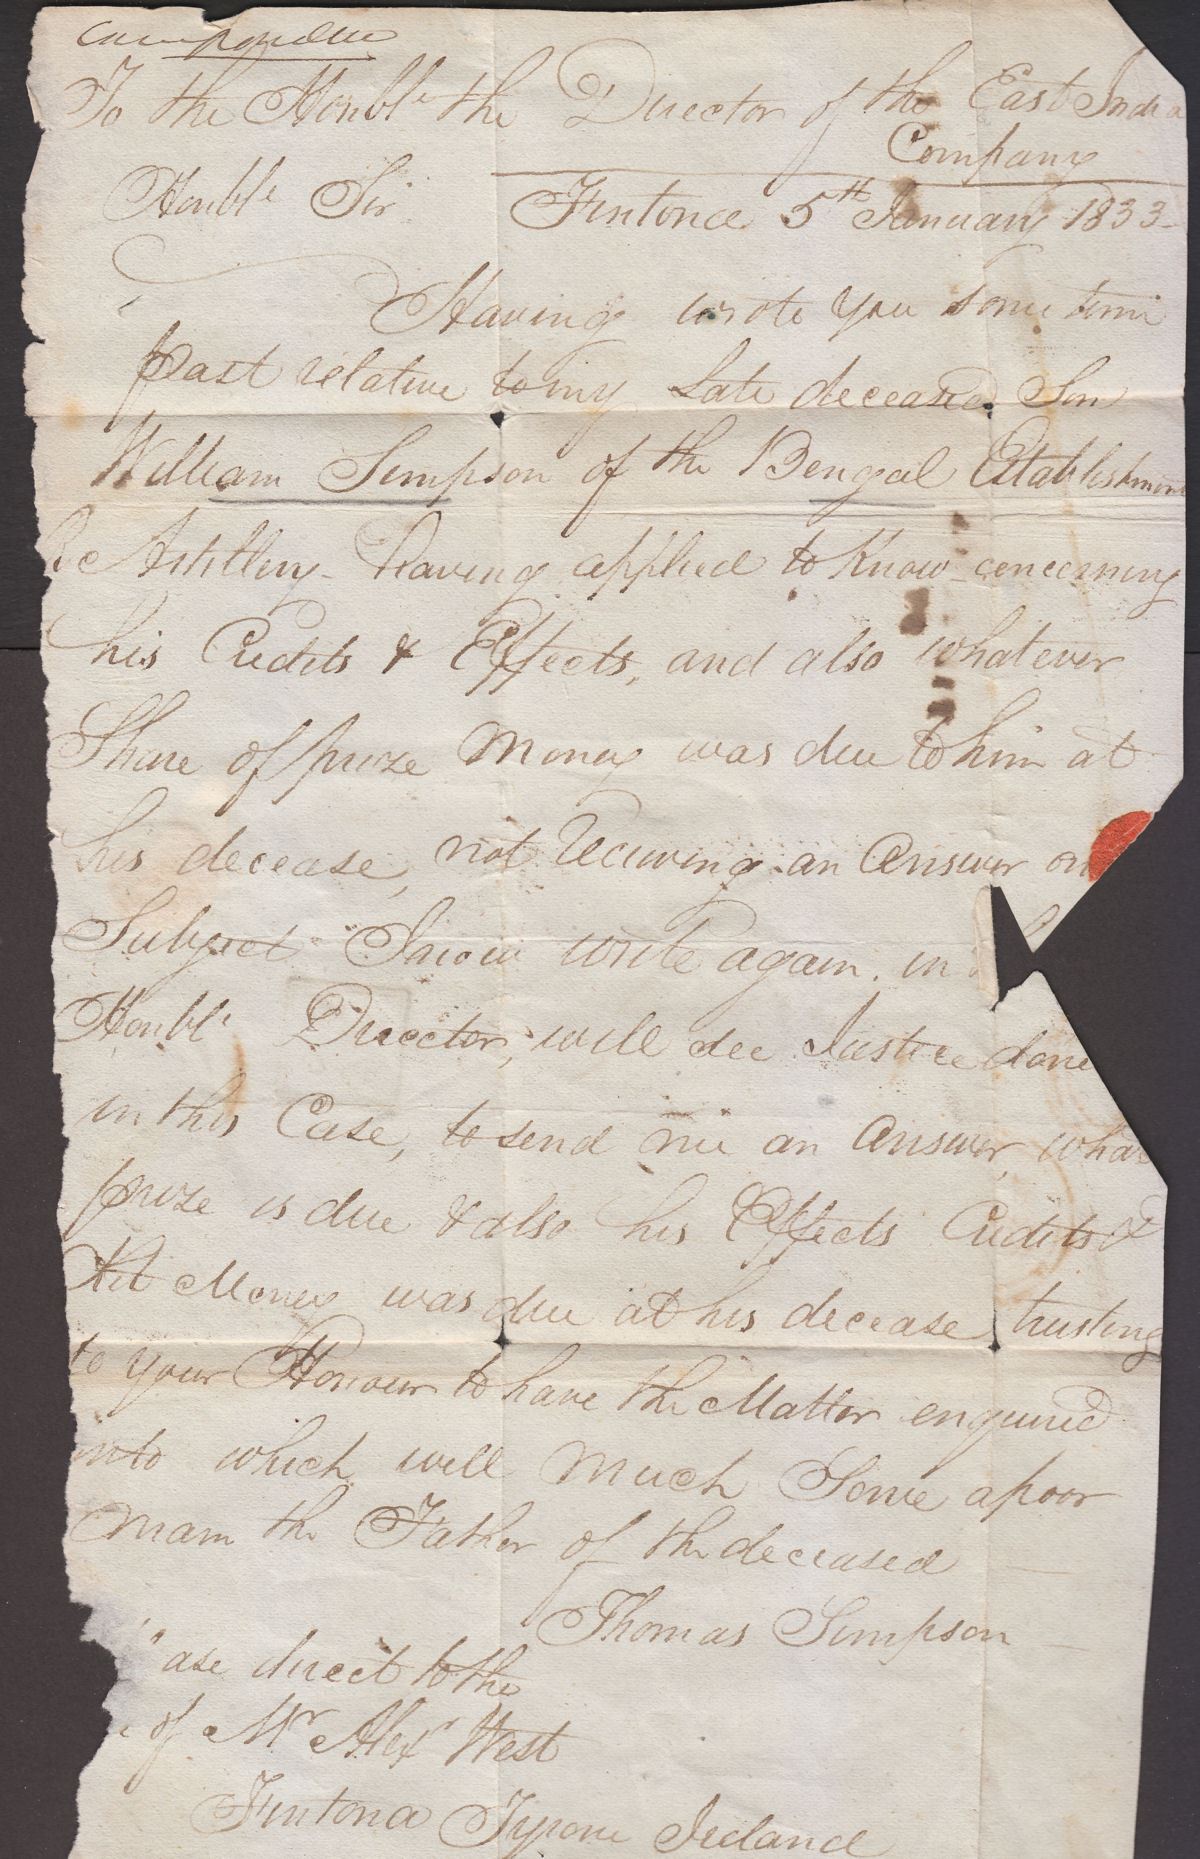 To the Honble the Director of the East India
Company
Honble Sir Fintona 5th January 1833
Having wrote you some time
past relative to my Late deceased Son
William Simpson of the Bengal Establishment
Artillery - having applied to Know concerning
his Credits & Effects, and also whatever
Share of prize Money was due to him at
his decease, not Receiving an Answer on
Subject I now write again. in
Honble Director, will see Justice done
in this Case, to send me an Answer, what
prize is due & also his Effects Credits &
Kit Money was due at his decease, trusting
to your Honour to have the Matter enquired
into which will Much Serve a poor
Man the Father of the deceased
Thomas Simpson
ase direct to the
of Mr Alexr West
Fintona Tyrone Ireland